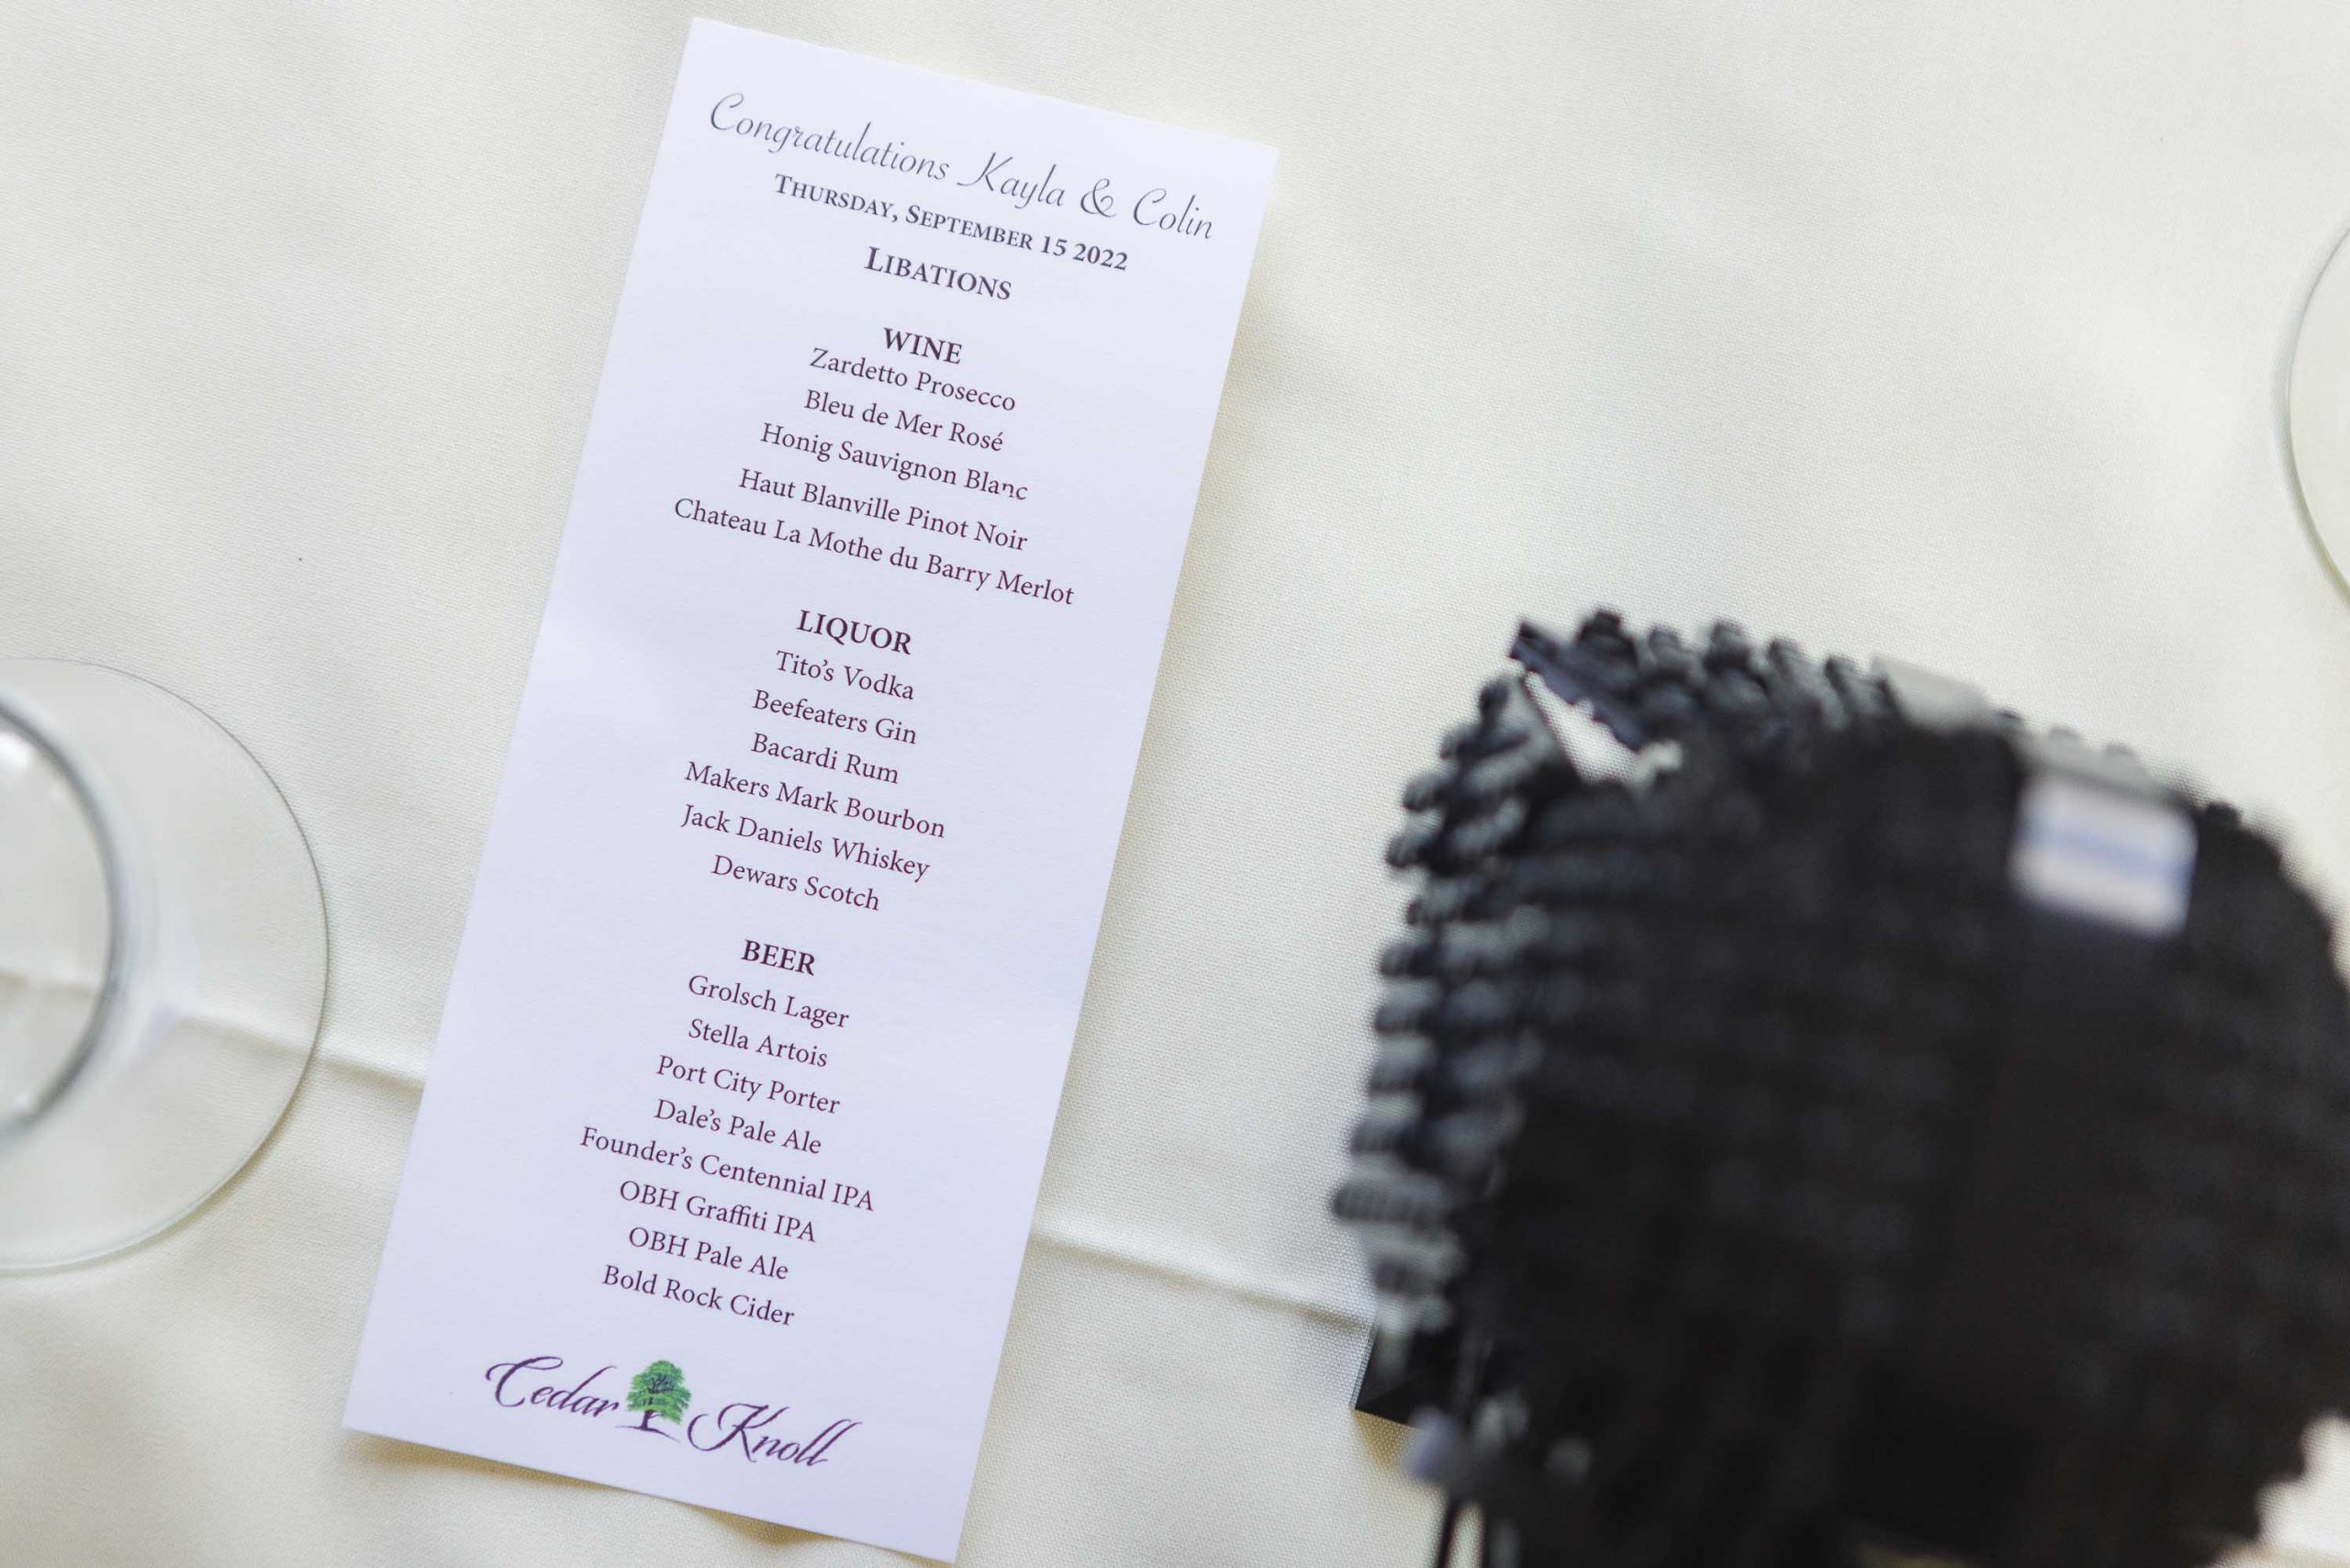 Congratulations Kayla & Colin
Thursday, September 15 2022
Libations
WINE
Zardetto Prosecco
Bleu de Mer Rosé
Honig Sauvignon Blanc
Haut Blanville Pinot Noir
Chateau La Mothe du Barry Merlot
LIQUOR
Tito’s Vodka
Beefeaters Gin
Bacardi Rum
Makers Mark Bourbon
Jack Daniels Whiskey
Dewars Scotch
BEER
Grolsch Lager
Stella Artois
Port City Porter
Dale’s Pale Ale
Founder’s Centennial IPA
OBH Graffiti IPA
OBH Pale Ale
Bold Rock Cider
Cedar Knoll